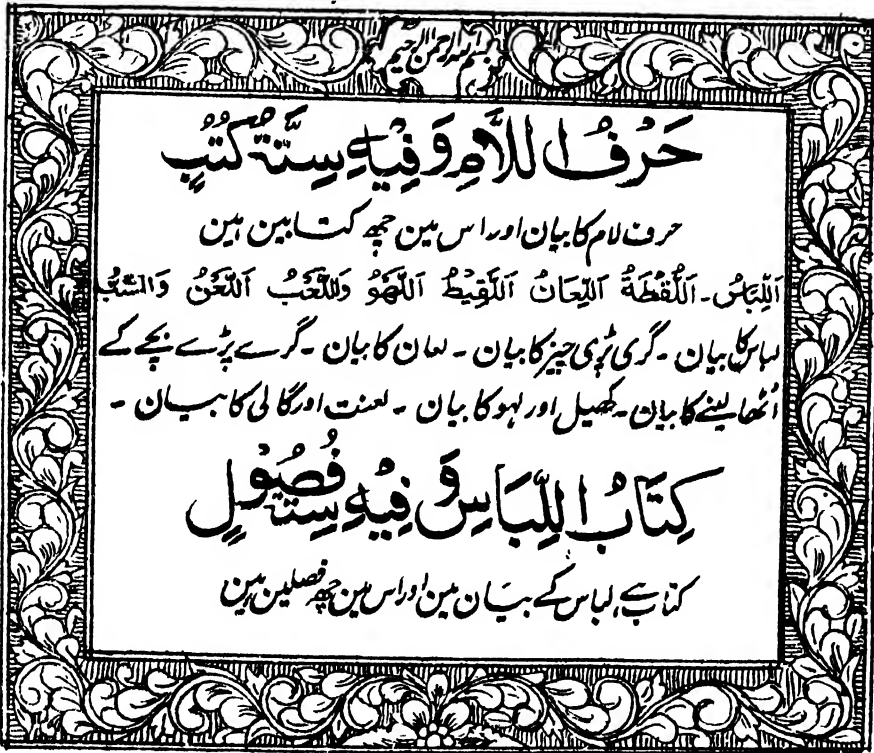 بسم الله الرحمن الرحيم
حَرْفُ اللَّامِ وَفِيْهِ سِتَّةُ كُتُبٍ
حرف لام کا بیان اور اس مین چھ کتابین ہین
اَللِّبَاسُ۔ اَللُّقْطَةُ اَللِّعَانُ اَللَّقِيْطُ اَللَّهْوُ وَاللَّعْبُ اَللَّعْنُ وَالسَّبُّ
لباس کا بیان ۔ گری پڑی چیز کا بیان ۔ لعان کا بیان ۔ گرے پڑے بچے کے
اُٹھا لینے کا بیان ۔ کھیل اور لہو کا بیان ۔ لعنت اور گالی کا بیان ۔
كِتَابُ اللِّبَاسِ وَفِيْهِ سِتَّةُ فُصُوْلٍ
کتاب ہے لباس کے بیان مین اور اس مین چھ فصلین ہین